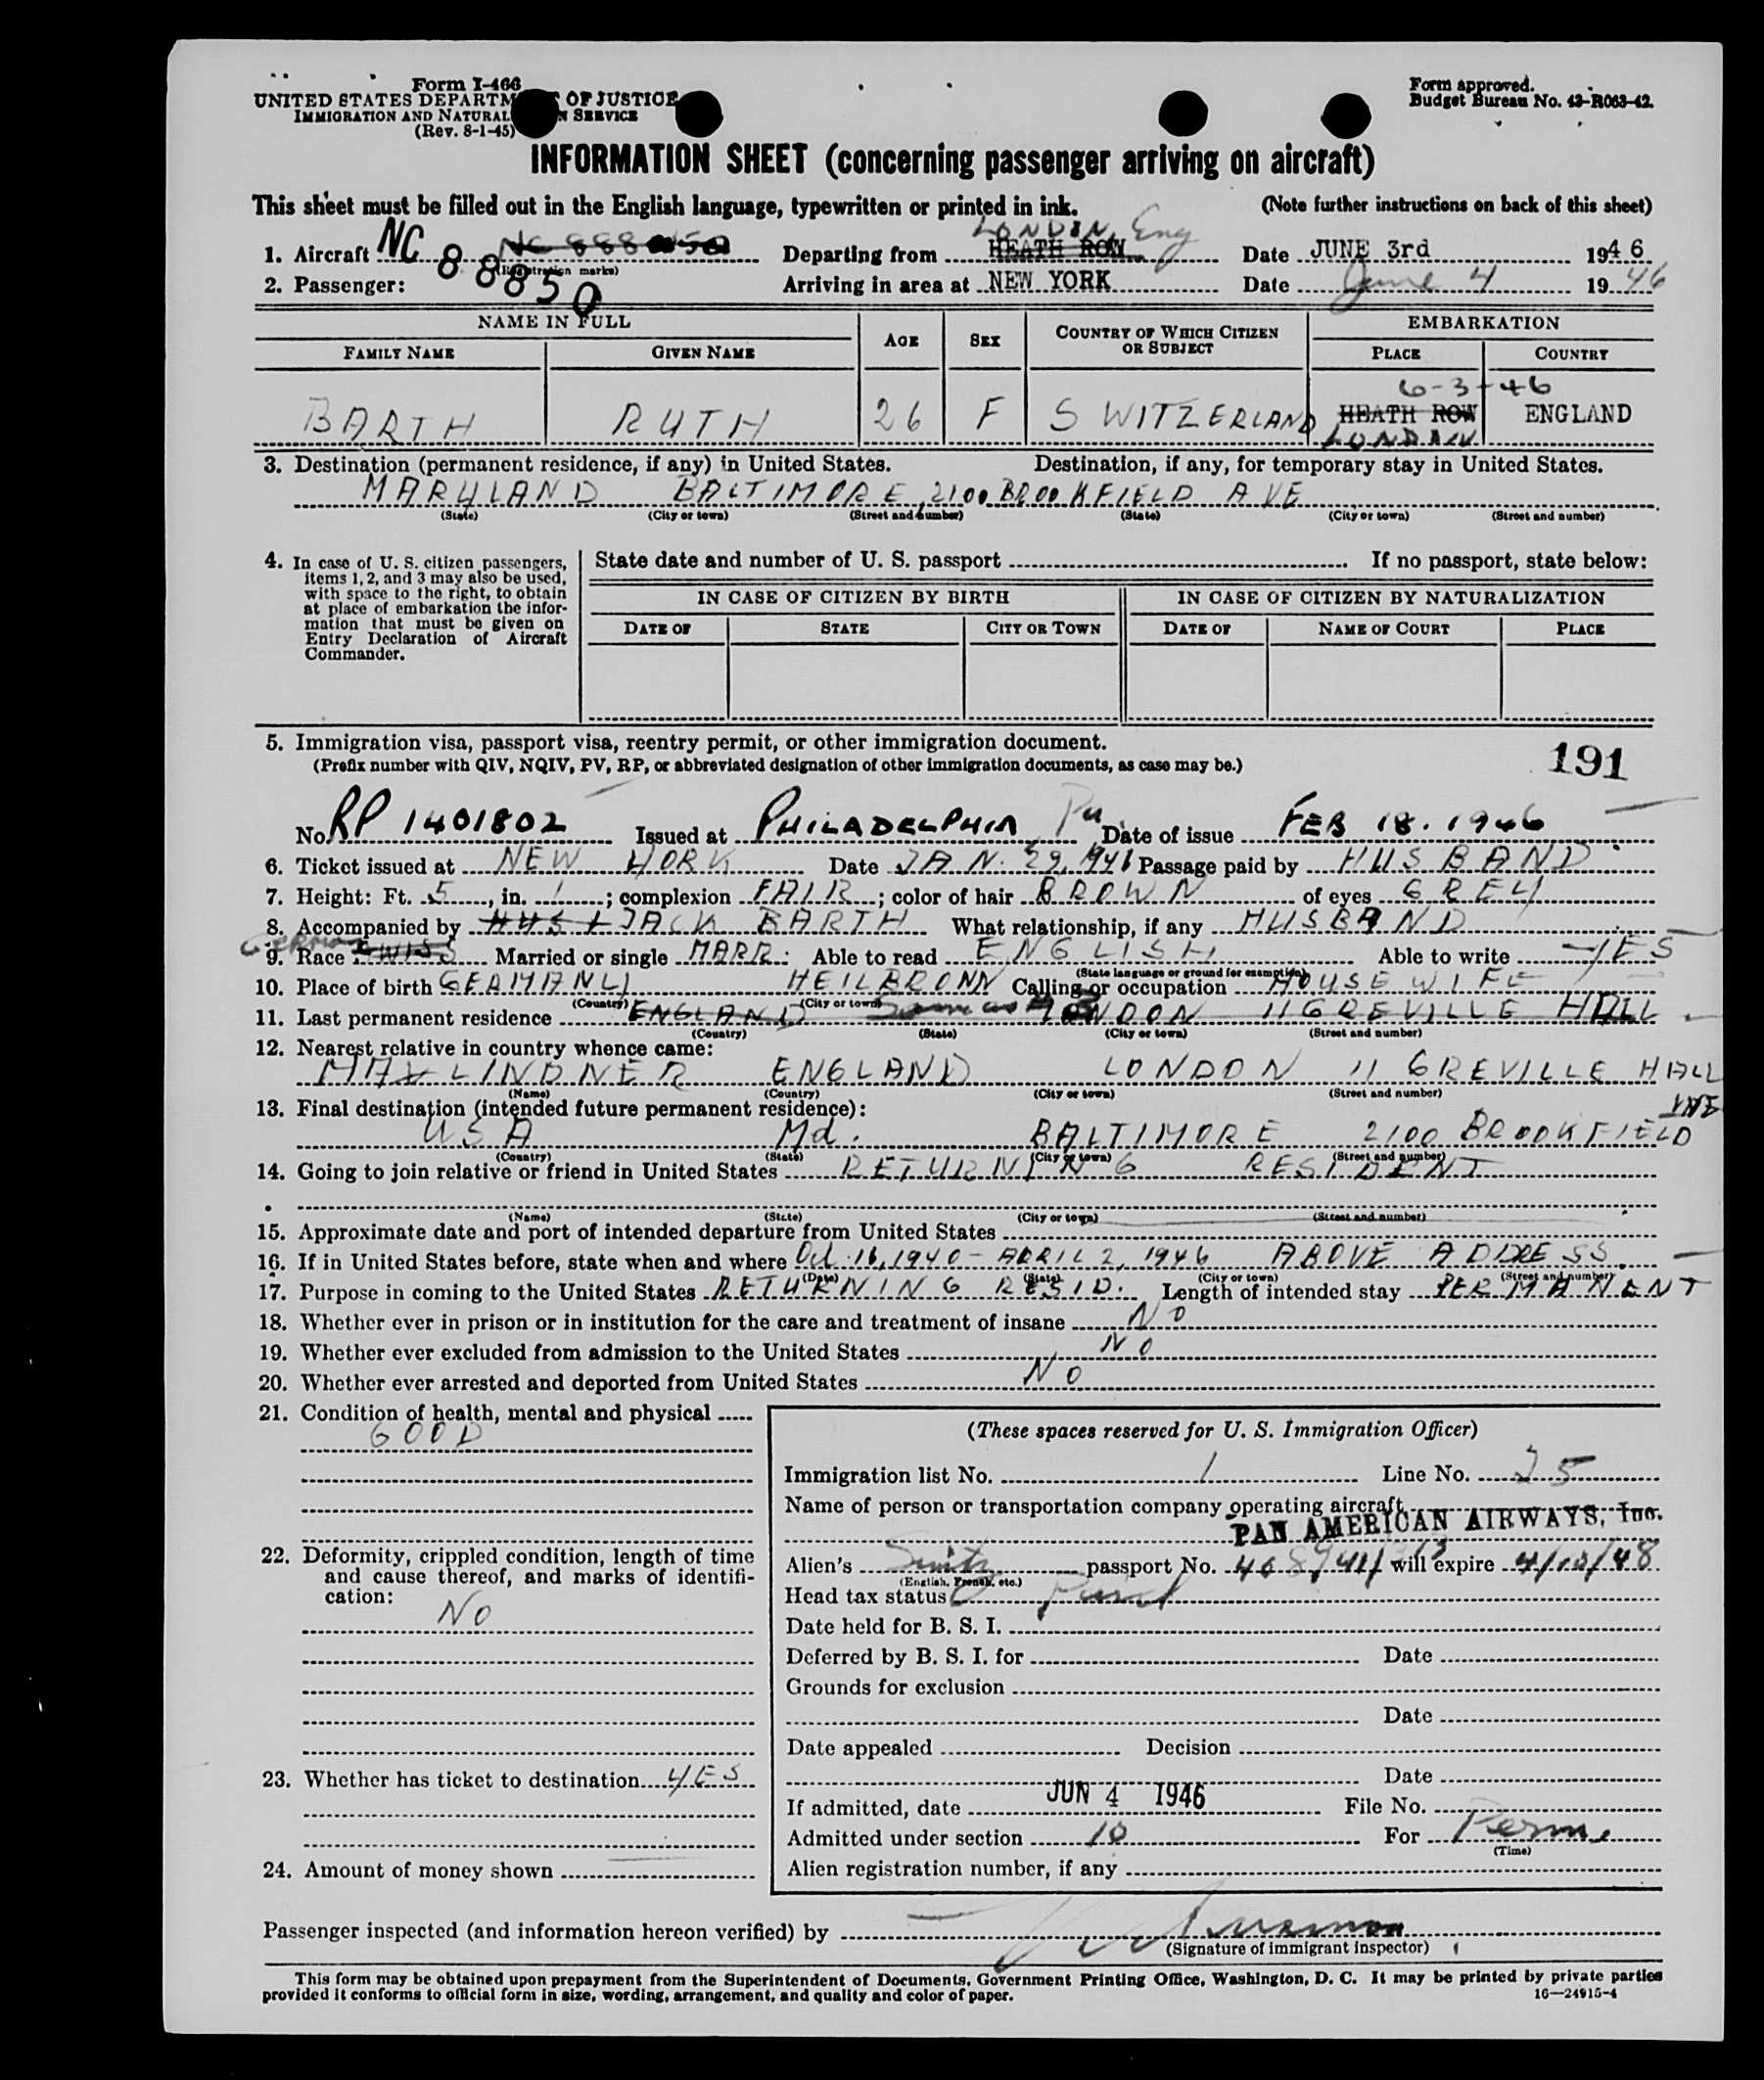 Form I-466
UNITED STATES DEPARTMENT OF JUSTICE
IMMIGRATION AND NATURALIZATION SERVICE
(Rev. 8-1-45)
Form approved.
Budget Bureau No. 43-R063-42.
INFORMATION SHEET (concerning passenger arriving on aircraft)
This sheet must be filled out in the English language, typewritten or printed in ink. (Note further instructions on back of this sheet)
LONDON, Eng
1. Aircraft NC 88850 Departing from HEATH ROW Date JUNE 3rd 1946
(Registration marks)
2. Passenger: Arriving in area at NEW YORK Date June 4 1946
NAME IN FULL AGE SEX COUNTRY OF WHICH CITIZEN OR SUBJECT EMBARKATION
FAMILY NAME GIVEN NAME PLACE COUNTRY
6-3-46
BARTH RUTH 26 F SWITZERLAND HEATH ROW ENGLAND
LONDON
3. Destination (permanent residence, if any) in United States. Destination, if any, for temporary stay in United States.
MARYLAND BALTIMORE, 2100 BROOKFIELD AVE
(State) (City or town) (Street and number) (State) (City or town) (Street and number)
4. In case of U. S. citizen passengers, items 1, 2, and 3 may also be used, with space to the right, to obtain at place of embarkation the information that must be given on Entry Declaration of Aircraft Commander.
State date and number of U. S. passport If no passport, state below:
IN CASE OF CITIZEN BY BIRTH IN CASE OF CITIZEN BY NATURALIZATION
DATE OF STATE CITY OR TOWN DATE OF NAME OF COURT PLACE
5. Immigration visa, passport visa, reentry permit, or other immigration document.
(Prefix number with QIV, NQIV, PV, RP, or abbreviated designation of other immigration documents, as case may be.)
191
No. RP 1401802 Issued at PHILADELPHIA, Pa. Date of issue FEB 18. 1946
6. Ticket issued at NEW YORK Date JAN. 29, 1946 Passage paid by HUSBAND
7. Height: Ft. 5, in. 1; complexion FAIR; color of hair BROWN of eyes GREY
8. Accompanied by JACK BARTH What relationship, if any HUSBAND
German
9. Race SWISS Married or single MARR. Able to read ENGLISH Able to write YES
(State language or ground for exemption)
10. Place of birth GERMANY HEILBRONN Calling or occupation HOUSEWIFE
(Country) (City or town)
11. Last permanent residence ENGLAND LONDON 11 GREVILLE HALL
(Country) (State) (City or town) (Street and number)
12. Nearest relative in country whence came:
MAX LINDNER ENGLAND LONDON 11 GREVILLE HALL
(Name) (Country) (City or town) (Street and number)
13. Final destination (intended future permanent residence):
USA Md. BALTIMORE 2100 BROOKFIELD AVE
(Country) (State) (City or town) (Street and number)
14. Going to join relative or friend in United States RETURNING RESIDENT
(Name) (State) (City or town) (Street and number)
15. Approximate date and port of intended departure from United States
16. If in United States before, state when and where Oct. 16, 1940 - APRIL 2, 1946 ABOVE ADDRESS.
(Date) (State) (City or town) (Street and number)
17. Purpose in coming to the United States RETURNING RESID. Length of intended stay PERMANENT
18. Whether ever in prison or in institution for the care and treatment of insane NO
19. Whether ever excluded from admission to the United States NO
20. Whether ever arrested and deported from United States NO
21. Condition of health, mental and physical
GOOD
22. Deformity, crippled condition, length of time and cause thereof, and marks of identification:
NO
23. Whether has ticket to destination YES
24. Amount of money shown
(These spaces reserved for U. S. Immigration Officer)
Immigration list No. 1 Line No. 25
Name of person or transportation company operating aircraft
PAN AMERICAN AIRWAYS, Inc.
Alien's passport No. will expire
(English, French, etc.)
Head tax status
Date held for B. S. I.
Deferred by B. S. I. for Date
Grounds for exclusion
Date
Date appealed Decision
Date
If admitted, date JUN 4 1946 File No.
Admitted under section 10 For Perm.
(Time)
Alien registration number, if any
Passenger inspected (and information hereon verified) by
(Signature of immigrant inspector)
This form may be obtained upon prepayment from the Superintendent of Documents, Government Printing Office, Washington, D. C. It may be printed by private parties
provided it conforms to official form in size, wording, arrangement, and quality and color of paper. 16—24915-4